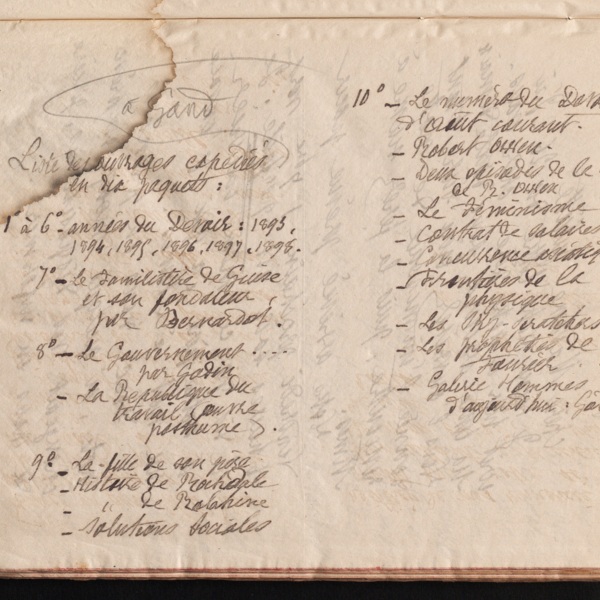 a Gand
Liste des ouvrages expédiés
en dix paquets :
1° à 6° - années du Devoir : 1893,
1894, 1895, 1896, 1897, 1898.
7° - Le Familistère de Guise
et son fondateur,
par Bernardot.
8° - Le Gouvernement ....
par Godin
- La République du
travail (œuvre
posthume).
9° - La fille de son père
- Histoire de Rochdale
- " de Ralahine
- Solutions sociales
10° - Le numéro du Devoir
d'août courant.
- Robert Owen.
- Deux épisodes de la
de R. Owen
- Le Féminisme
- Contrat de salaires
- Concurrence
- Frontières de la
physique
- Les
- Les prophéties de
Fourier
- Galerie Hommes
d'aujourd'hui :